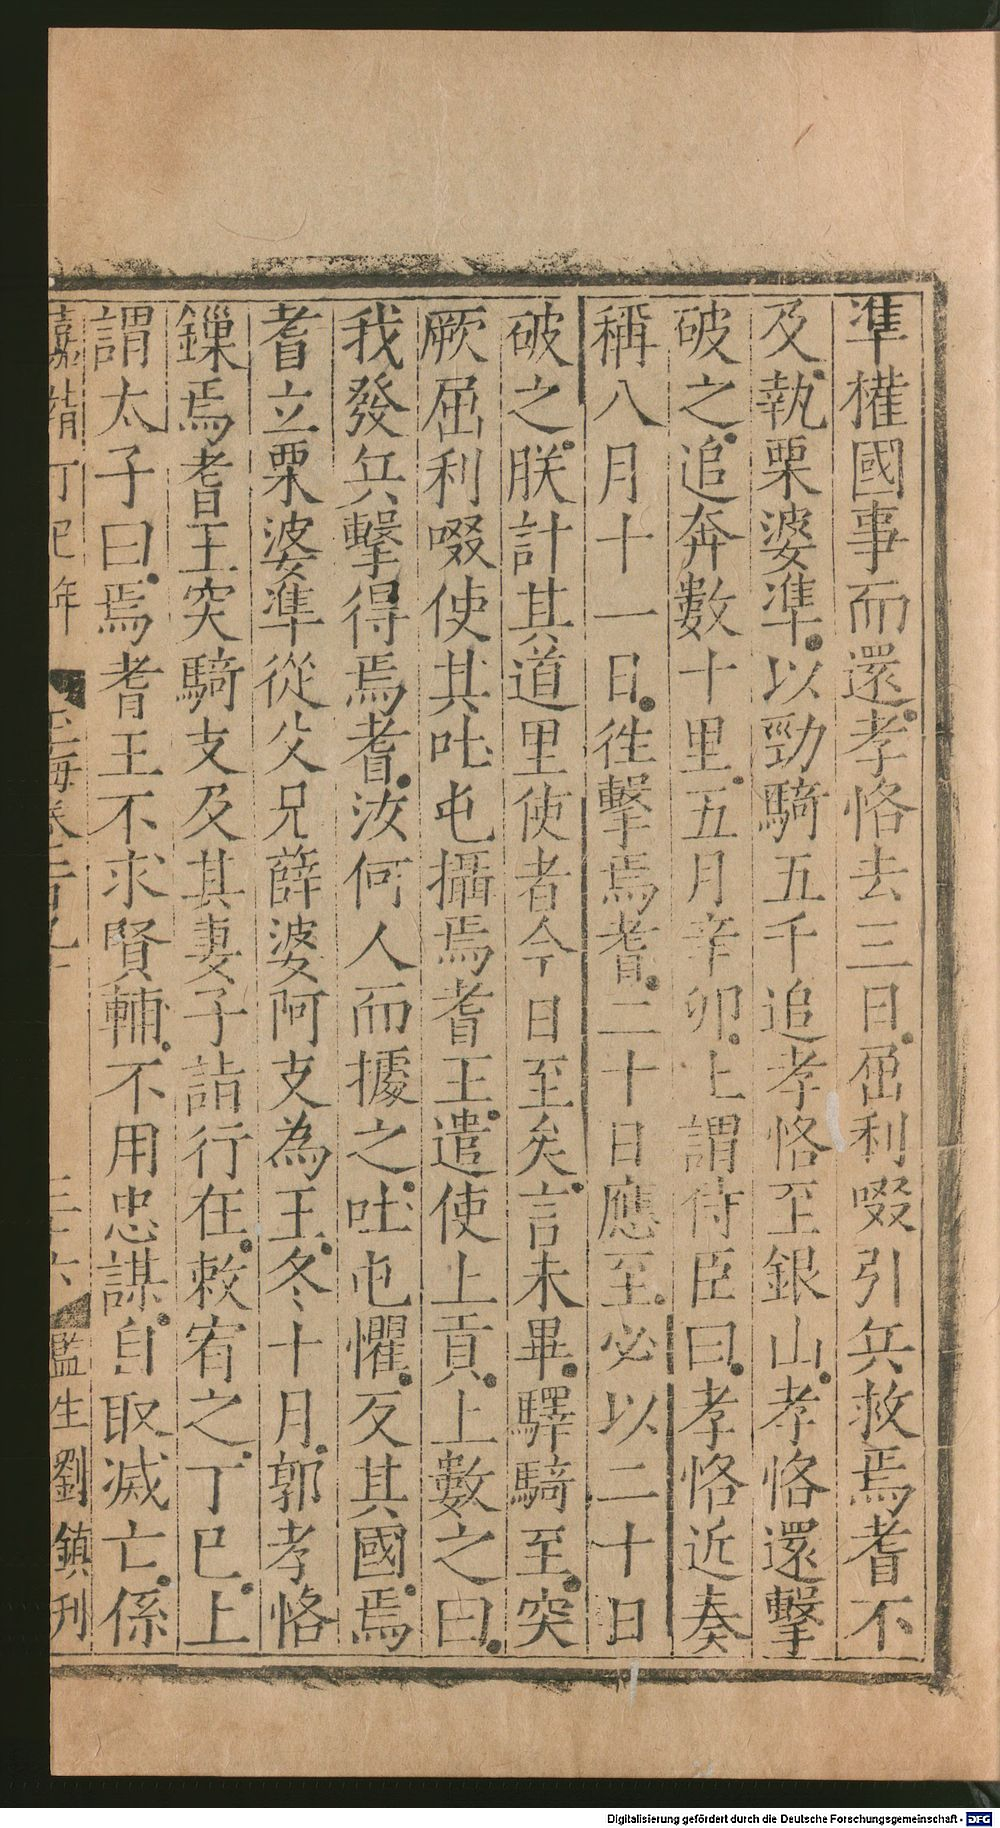 準權國事而還孝恪去三日屈利啜引兵救焉耆不
及執栗婆準以勁騎五千追孝恪至銀山孝恪還擊
破之追奔數十里五月辛卯上謂侍臣曰孝恪近奏
稱八月十一日徃擊焉耆二十日應至必以二十日
破之朕計其道里使者今日至矣言未畢驛騎至突
厥屈利啜使其吐屯攝焉耆王遣使上貢上數之曰
我發兵擊得焉耆汝何人而據之吐屯懼反其國焉
耆立栗婆準從父兄薛婆阿支為王冬十月郭孝恪
鏁焉耆王突騎支及其妻子詣行在敕宥之丁巳上
謂太子曰焉耆王不求賢輔不用忠謀自取滅亡係
嘉靖丁巳年 玉海卷 監生劉鎮刋
Digitalisierung gefördert durch die Deutsche Forschungsgemeinschaft - DFG